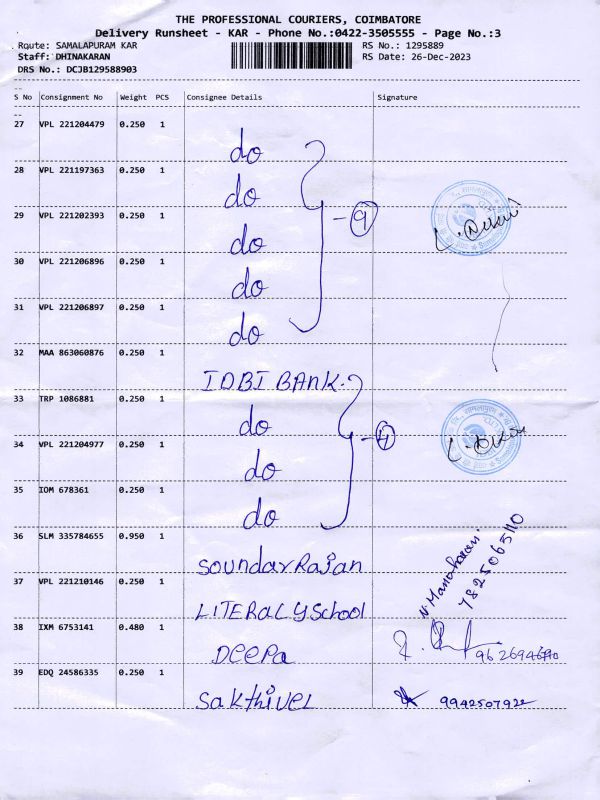 THE PROFESSIONAL COURIERS, COIMBATORE
Delivery Runsheet - KAR - Phone No.:0422-3505555 - Page No.:3
Route: SAMALAPURAM KAR RS No.: 1295889
Staff: DHINAKARAN RS Date: 26-Dec-2023
DRS No.: DCJB129588903
S No Consignment No Weight PCS Consignee Details Signature
27 VPL 221204479 0.250 1 do
28 VPL 221197363 0.250 1 do
29 VPL 221202393 0.250 1 do - 9
30 VPL 221206896 0.250 1 do
31 VPL 221206897 0.250 1 do
32 MAA 863060876 0.250 1 IDBI BANK.
33 TRP 1086881 0.250 1 do
34 VPL 221204977 0.250 1 do - 4
35 IOM 678361 0.250 1 do
36 SLM 335784655 0.950 1 SoundarRajan
37 VPL 221210146 0.250 1 LITERACY School N. Manoharan. 7825065110
38 IXM 6753141 0.480 1 Deepa
39 EDQ 24586335 0.250 1 Sakthivel 9942507922